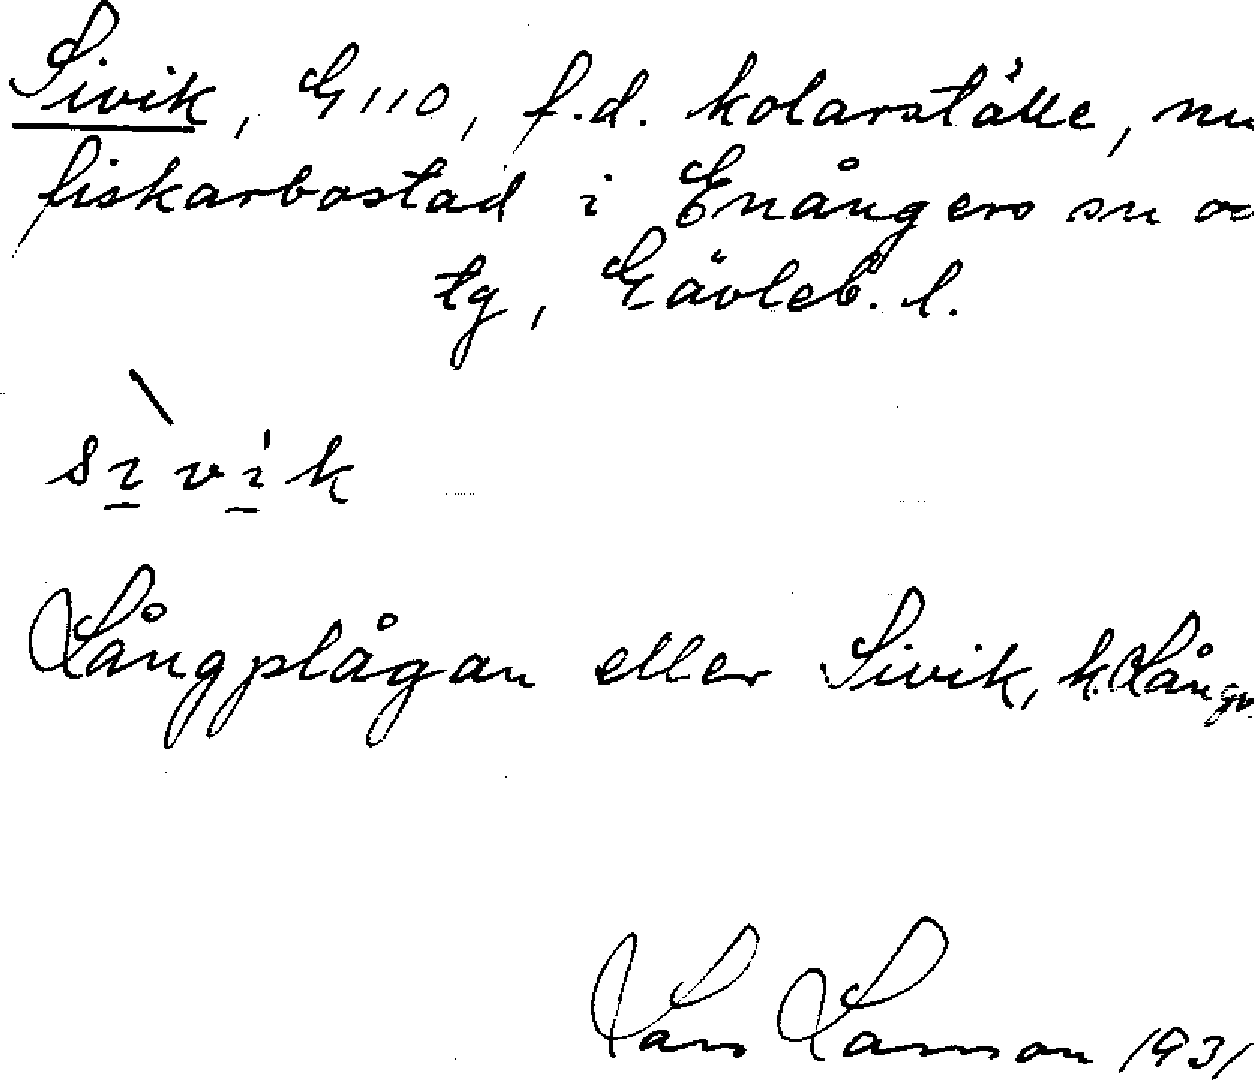 Sivik, G 110, f.d. kolarställe, nu
fiskarbostad i Enångers sn oc
tg, Gävleb. l.
sìvik
Långplågan eller Sivik, k.
Lars Larsson 1931